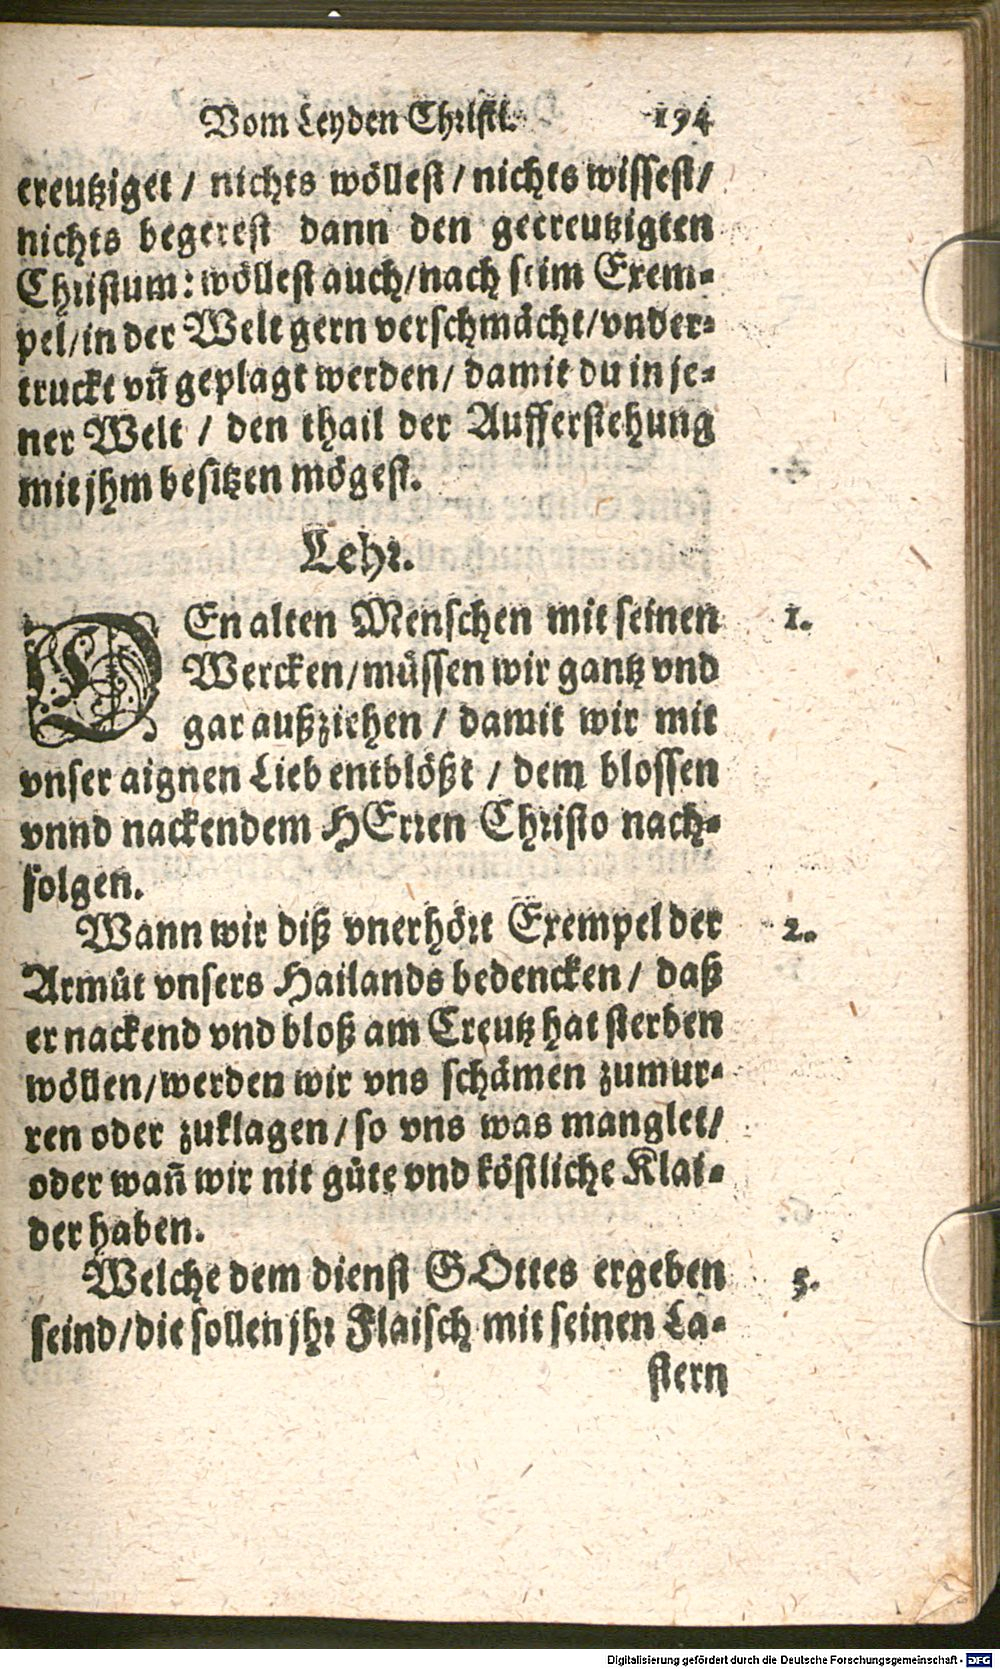 Vom Leyden Christi. 194
creutziget / nichts wöllest / nichts wissest /
nichts begerest dann den gecreutzigten
Christum: wöllest auch / nach seim Exem-
pel / in der Welt gern verschmächt / vnder-
truckt vñ geplagt werden / damit du in je-
ner Welt / den thail der Aufferstehung
mit jhm besitzen mögest.
Lehr.
DEn alten Menschen mit seinen 1.
Wercken / müssen wir gantz vnd
gar außziehen / damit wir mit
vnser aignen Lieb entblößt / dem blossen
vnnd nackendem HErren Christo nach-
folgen.
Wann wir diß vnerhört Exempel der 2.
Armůt vnsers Hailands bedencken / daß
er nackend vnd bloß am Creutz hat sterben
wöllen / werden wir vns schämen zumur-
ren oder zuklagen / so vns was manglet /
oder wañ wir nit gůte vnd köstliche Klai-
der haben.
Welche dem dienst GOttes ergeben 3.
seind / die sollen jhr Flaisch mit seinen La-
stern
Digitalisierung gefördert durch die Deutsche Forschungsgemeinschaft - DFG